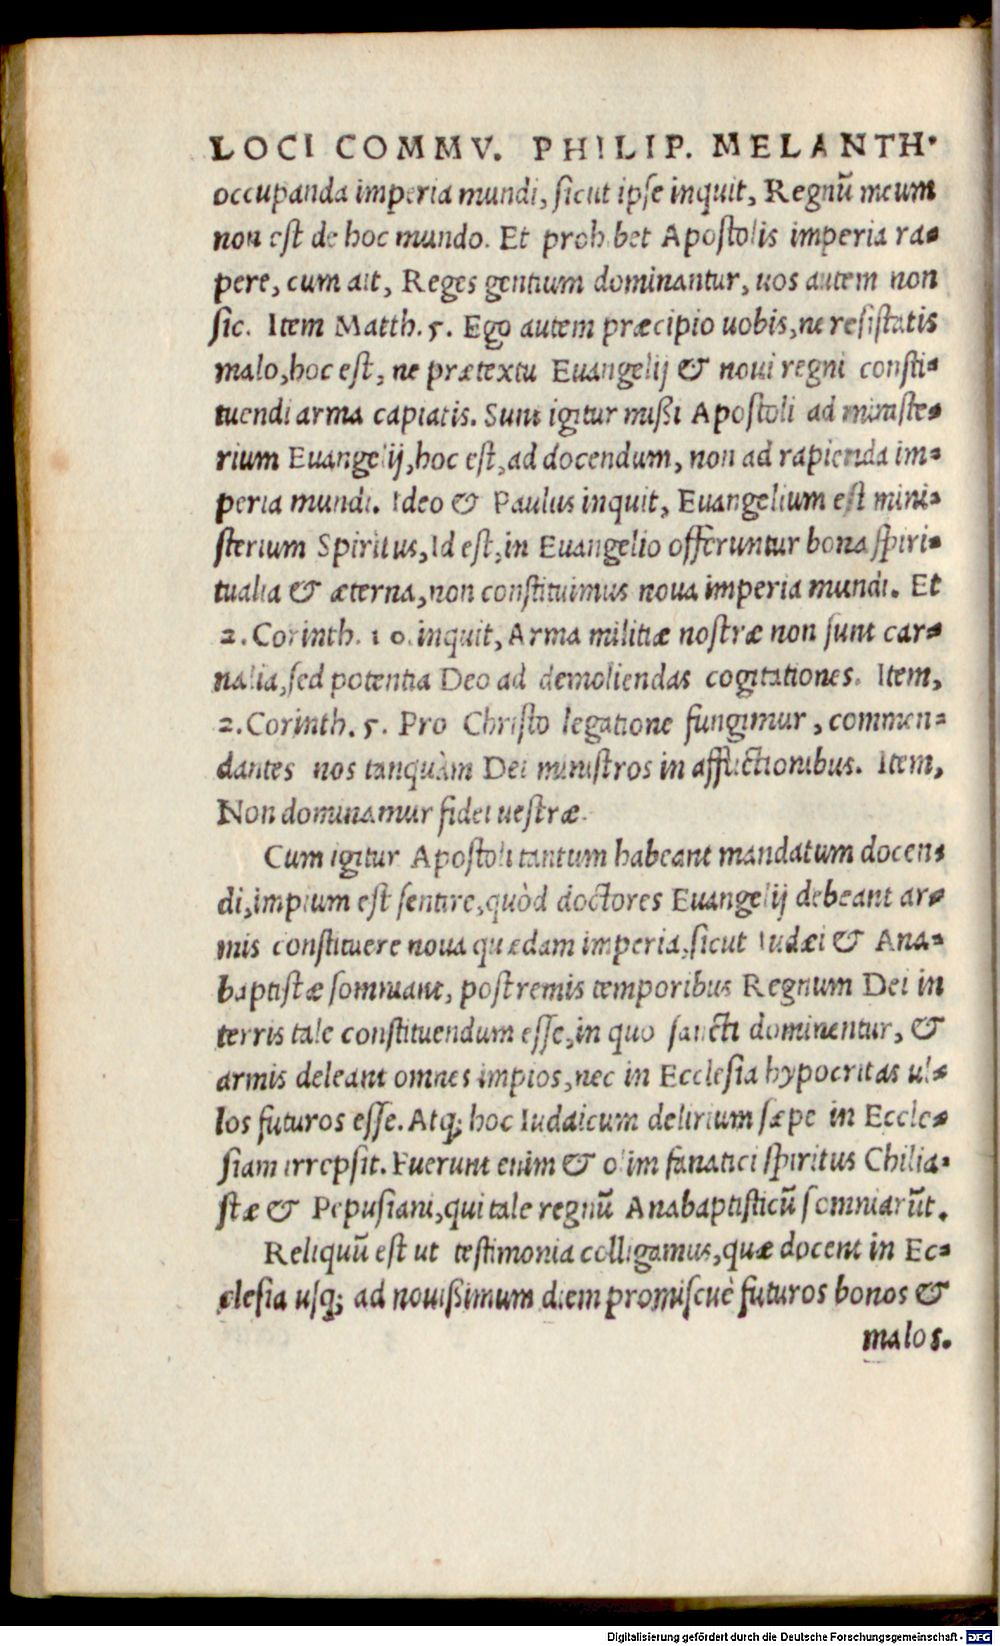 LOCI COMMV. PHILIP. MELANTH.
occupanda imperia mundi, ſicut ipſe inquit, Regnū meum
non eſt de hoc mundo. Et proh bet Apoſtolis imperia ra-
pere, cum ait, Reges gentium dominantur, uos autem non
ſic. Item Matth. 5. Ego autem præcipio uobis, ne reſiſtatis
malo, hoc eſt, ne prætextu Euangelij & noui regni conſti-
tuendi arma capiatis. Sunt igitur mißi Apoſtoli ad miniſte-
rium Euangelij, hoc eſt, ad docendum, non ad rapienda im-
peria mundi. Ideo & Paulus inquit, Euangelium eſt mini-
ſterium Spiritus, Id eſt, in Euangelio offeruntur bona ſpiri-
tualia & æterna, non conſtituimus noua imperia mundi. Et
2. Corinth. 10. inquit, Arma militiæ noſtræ non ſunt car-
nalia, ſed potentia Deo ad demoliendas cogitationes. Item,
2. Corinth. 5. Pro Chriſto legatione fungimur, commen-
dantes nos tanquàm Dei miniſtros in afflictionibus. Item,
Non dominamur fidei ueſtræ.
Cum igitur Apoſtoli tantum habeant mandatum docen-
di, impium eſt ſentire, quòd doctores Euangelij debeant ar-
mis conſtituere noua quædam imperia, ſicut Iudæi & Ana-
baptiſtæ ſomniant, poſtremis temporibus Regnum Dei in
terris tale conſtituendum eſſe, in quo ſancti dominentur, &
armis deleant omnes impios, nec in Eccleſia hypocritas ul-
los futuros eſſe. Atq; hoc Iudaicum delirium ſæpe in Eccle-
ſiam irrepſit. Fuerunt enim & olim fanatici ſpiritus Chilia-
ſtæ & Pepuſiani, qui tale regnū Anabaptiſticū ſomniarūt.
Reliquū eſt ut teſtimonia colligamus, quæ docent in Ec-
cleſia uſq; ad nouißimum diem promiſcuè futuros bonos &
malos.
Digitalisierung gefördert durch die Deutsche Forschungsgemeinschaft - DFG